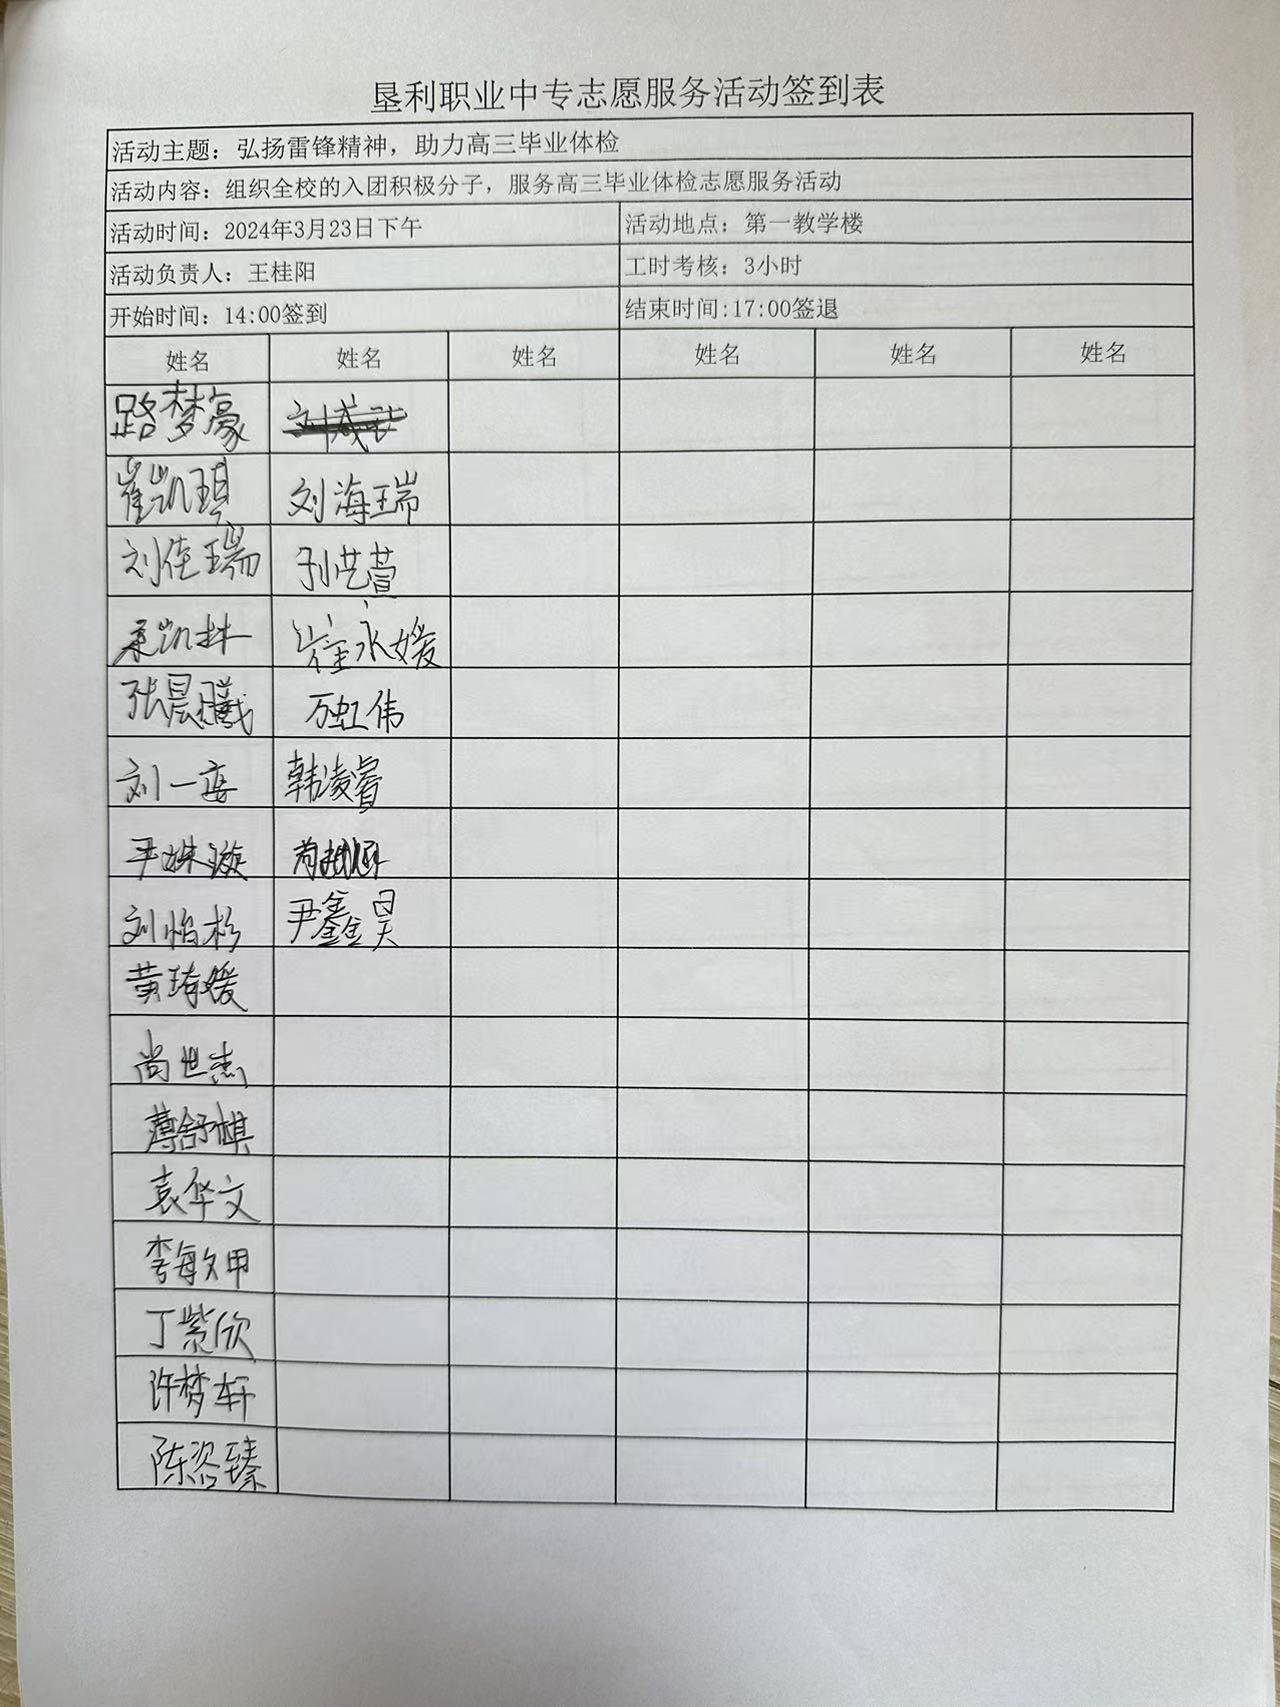 垦利职业中专志愿服务活动签到表
活动主题：弘扬雷锋精神，助力高三毕业体检
活动内容：组织全校的入团积极分子，服务高三毕业体检志愿服务活动
活动时间：2024年3月23日下午 活动地点：第一教学楼
活动负责人：王桂阳 工时考核：3小时
开始时间：14:00签到 结束时间:17:00签退
姓名 姓名 姓名 姓名 姓名 姓名
路梦豪
崔凯琪 刘海瑞
刘佳瑞 孙艺萱
崔永媛
张晨曦 万虹伟
刘一 韩凌睿
尹姝漩
刘怡杉 尹鑫昊
黄琦媛
尚世杰
薄舒棋
袁华文
李敏甲
丁紫欣
许梦轩
陈咨臻